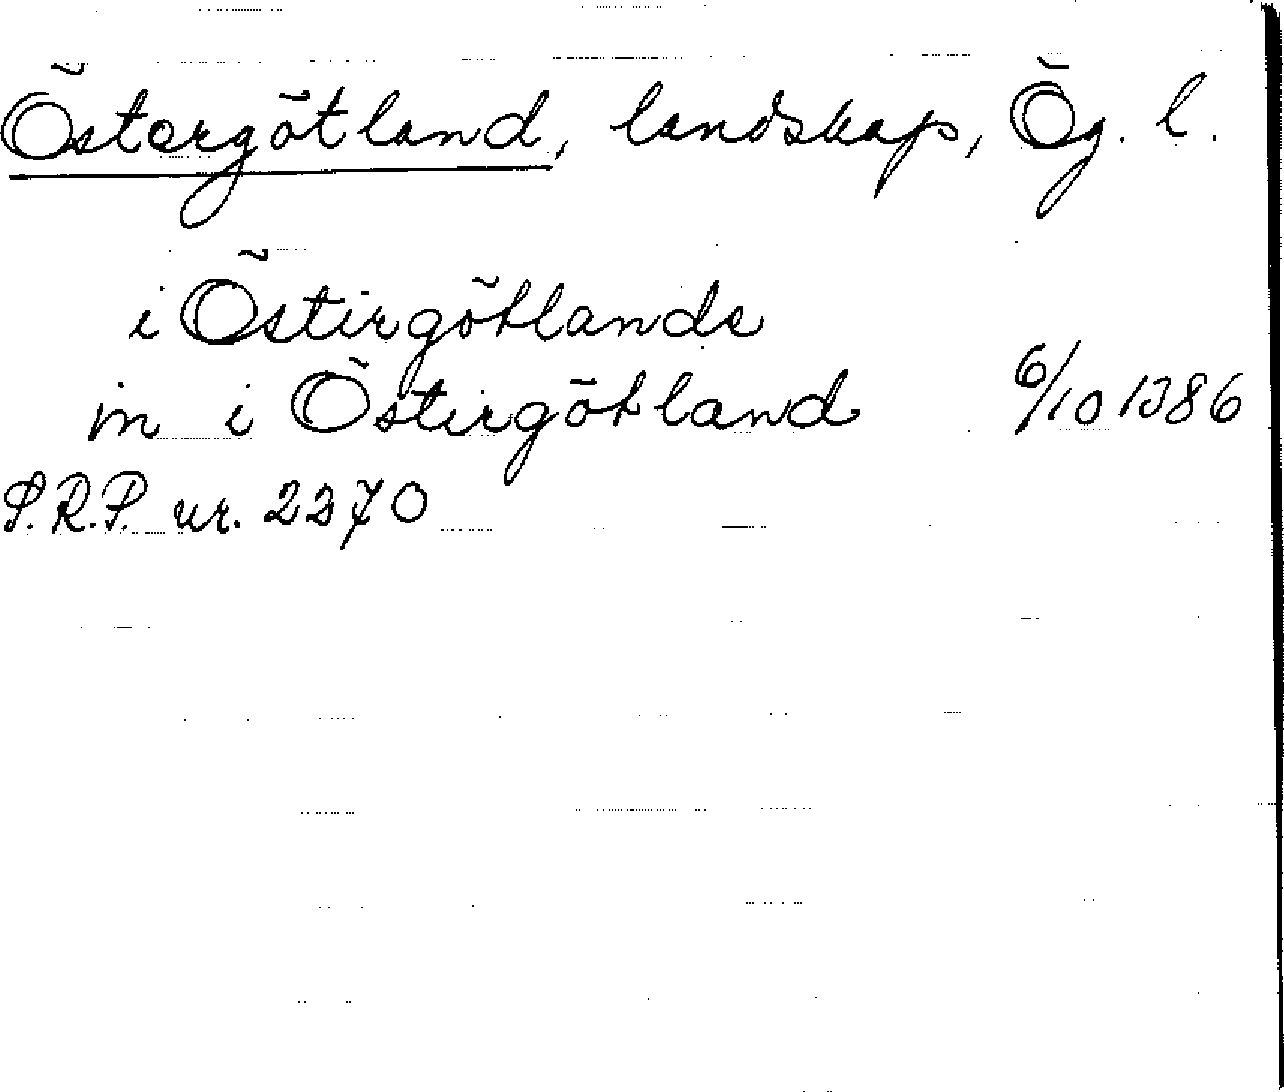 Östergötland, landskap, Ög. l.
i Östirgötlands
in i Östirgötland 6/10 1386
S.R.P. nr. 2370